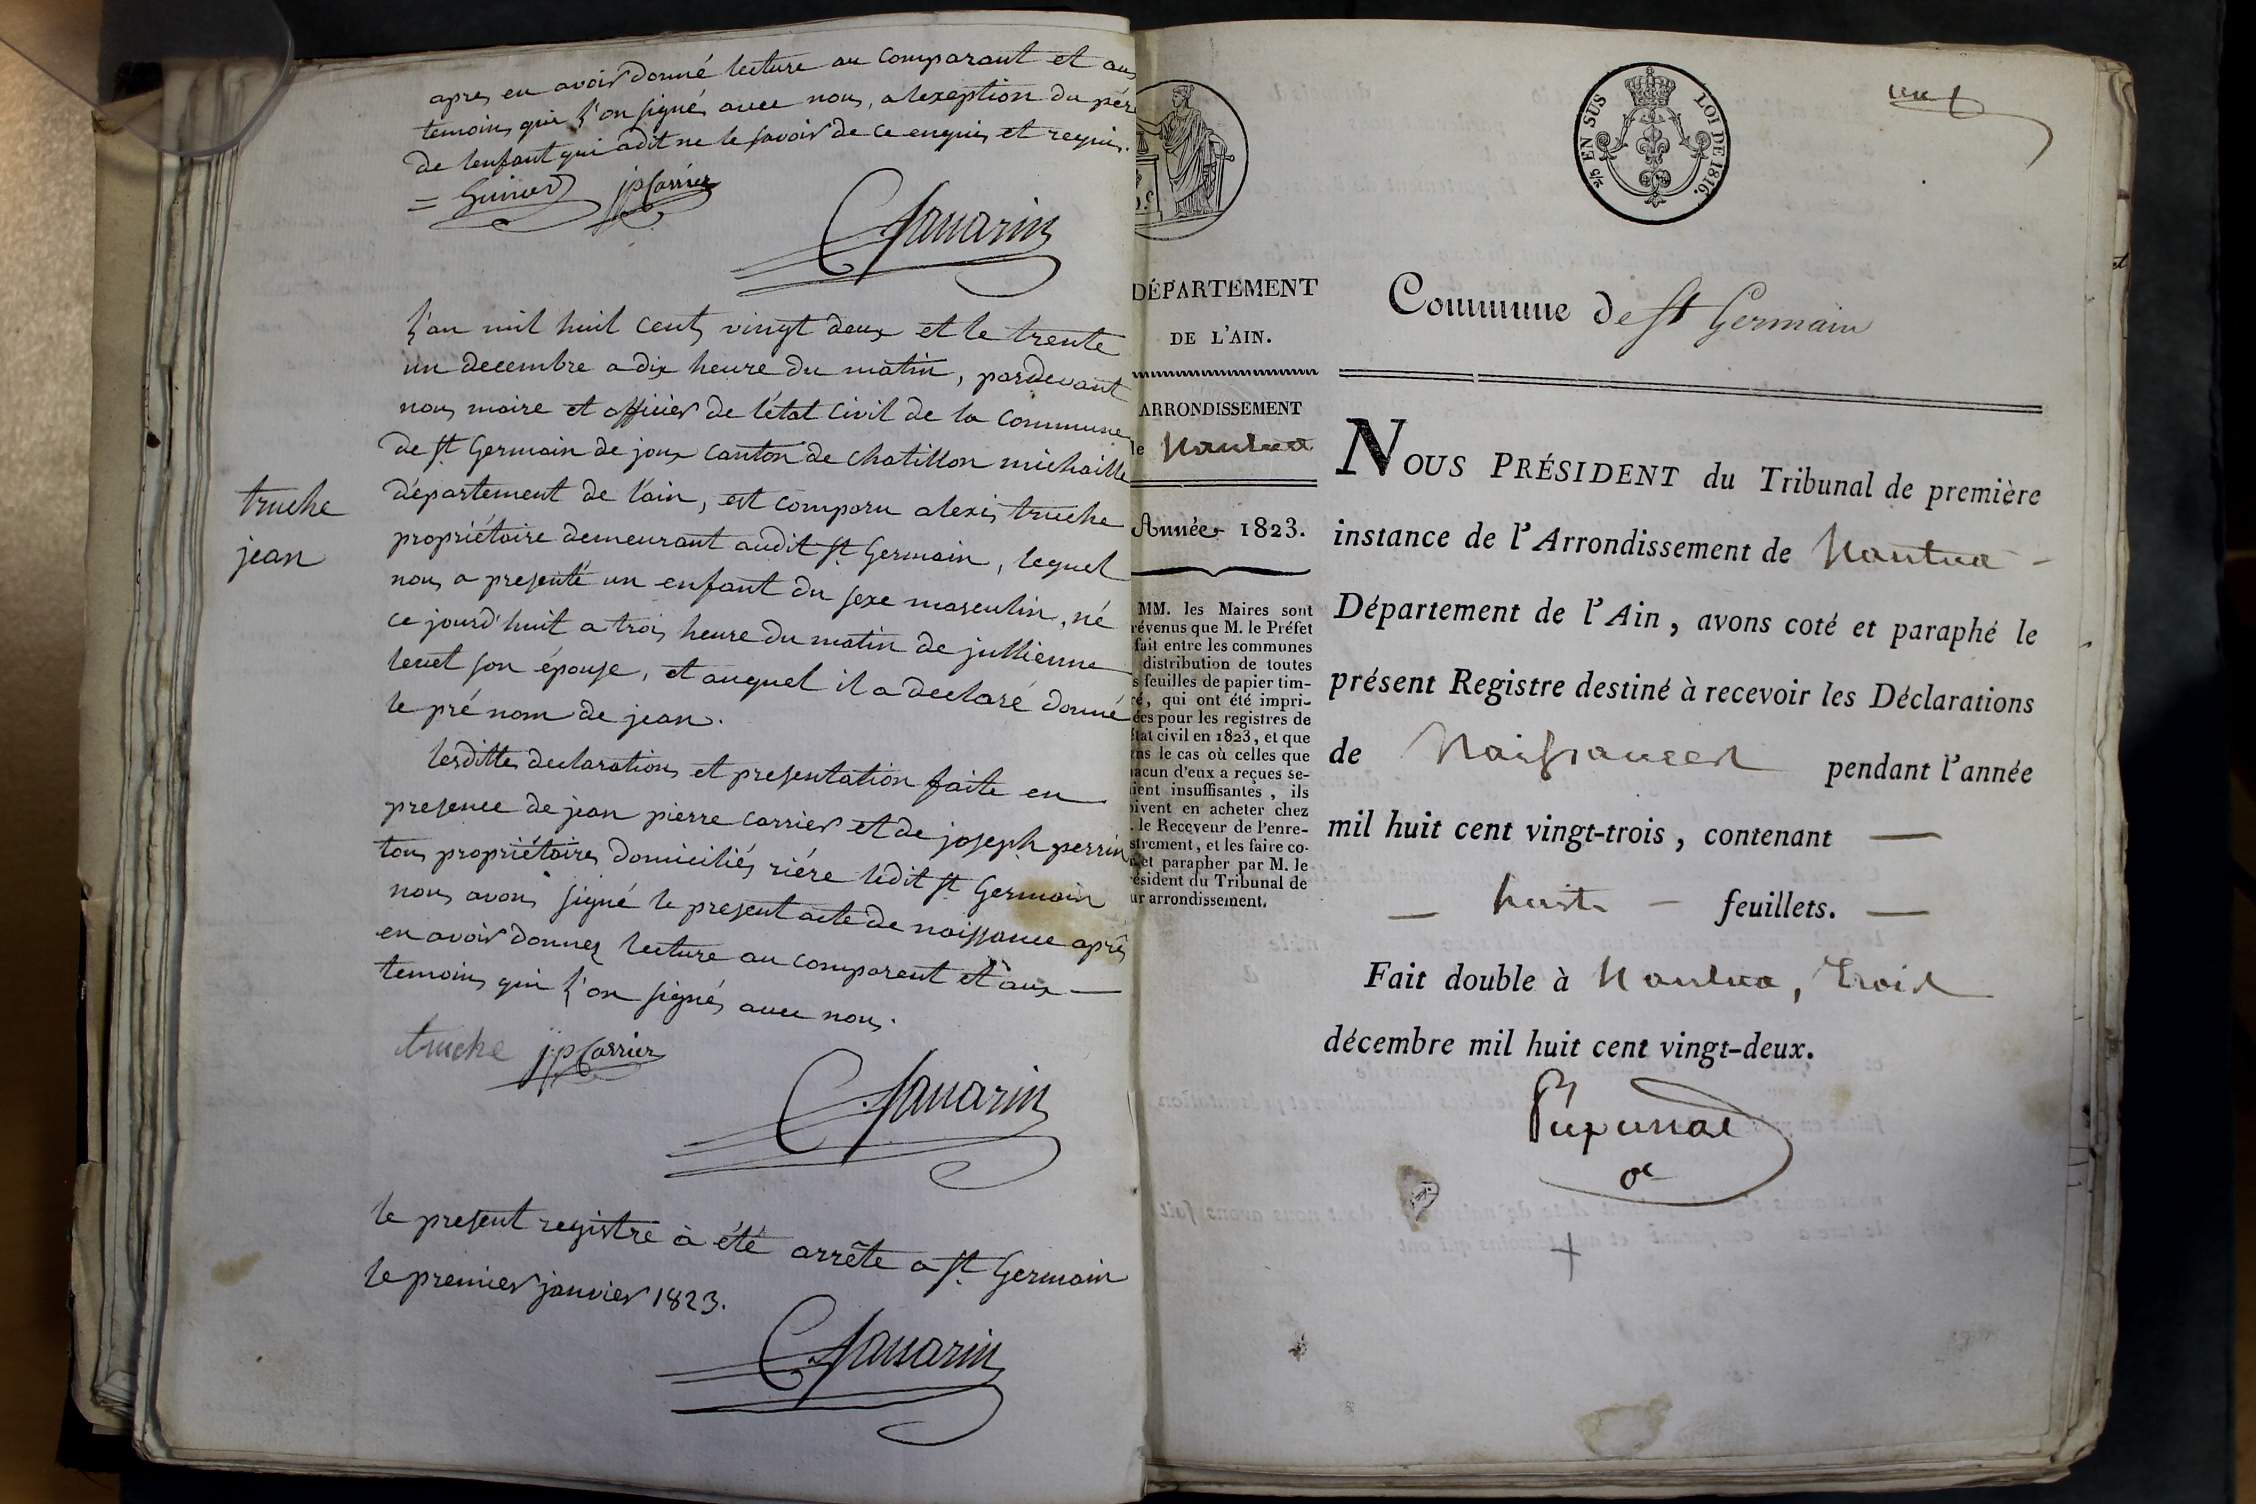 apres en avoir donné lecture au comparant et aux
temoins qui l'on signé avec nous, alexeption du pére
de lenfant qui adit ne le savoir de ce enquis et requis.
jpCarrier
Savarin
truche
jean
L'an mil huit cents vingt deux et le trente
un decembre a dix heure du matin, pardevant
nous maire et officier de l'état civil de la commune
de st Germain de joux canton de chatillon michaille
département de l'ain, est comparu alexis truche
propriétaire demeurant audit st Germain, lequel
nous a presenté un enfant du sexe masculin, né
ce jourd'huit a trois heure du matin de jullienne
levet son épouse, et auquel il a declaré donné
le pré nom de jean.
lesdittes declarations et presentation faite en
presence de jean pierre carrier et de joseph perrin
tous propriétaires domiciliés riére ledit st Germain
nous avons signé le present acte de naissance aprés
en avoir donnez lecture au comparent et aux
temoins qui l'on signés avec nous.
truche jpCarrier
Savarin
le present registre à été arrête a st Germain
le premier janvier 1823.
Savarin
DÉPARTEMENT
DE L'AIN.
ARRONDISSEMENT
de Nantua
Année 1823.
MM. les Maires sont
prévenus que M. le Préfet
fait entre les communes
distribution de toutes
s feuilles de papier tim-
ré, qui ont été impri-
ées pour les registres de
état civil en 1823, et que
ans le cas où celles que
hacun d'eux a reçues se-
aient insuffisantes, ils
oivent en acheter chez
. le Receveur de l'enre-
strement, et les faire co-
r et parapher par M. le
résident du Tribunal de
ur arrondissement.
2/5 EN SUS
LOI DE 1816.
un
Commune de st Germain
NOUS PRÉSIDENT du Tribunal de première
instance de l'Arrondissement de Nantua
Département de l'Ain, avons coté et paraphé le
présent Registre destiné à recevoir les Déclarations
de Naissances pendant l'année
mil huit cent vingt-trois, contenant
huit feuillets.
Fait double à Nantua, trois
décembre mil huit cent vingt-deux.